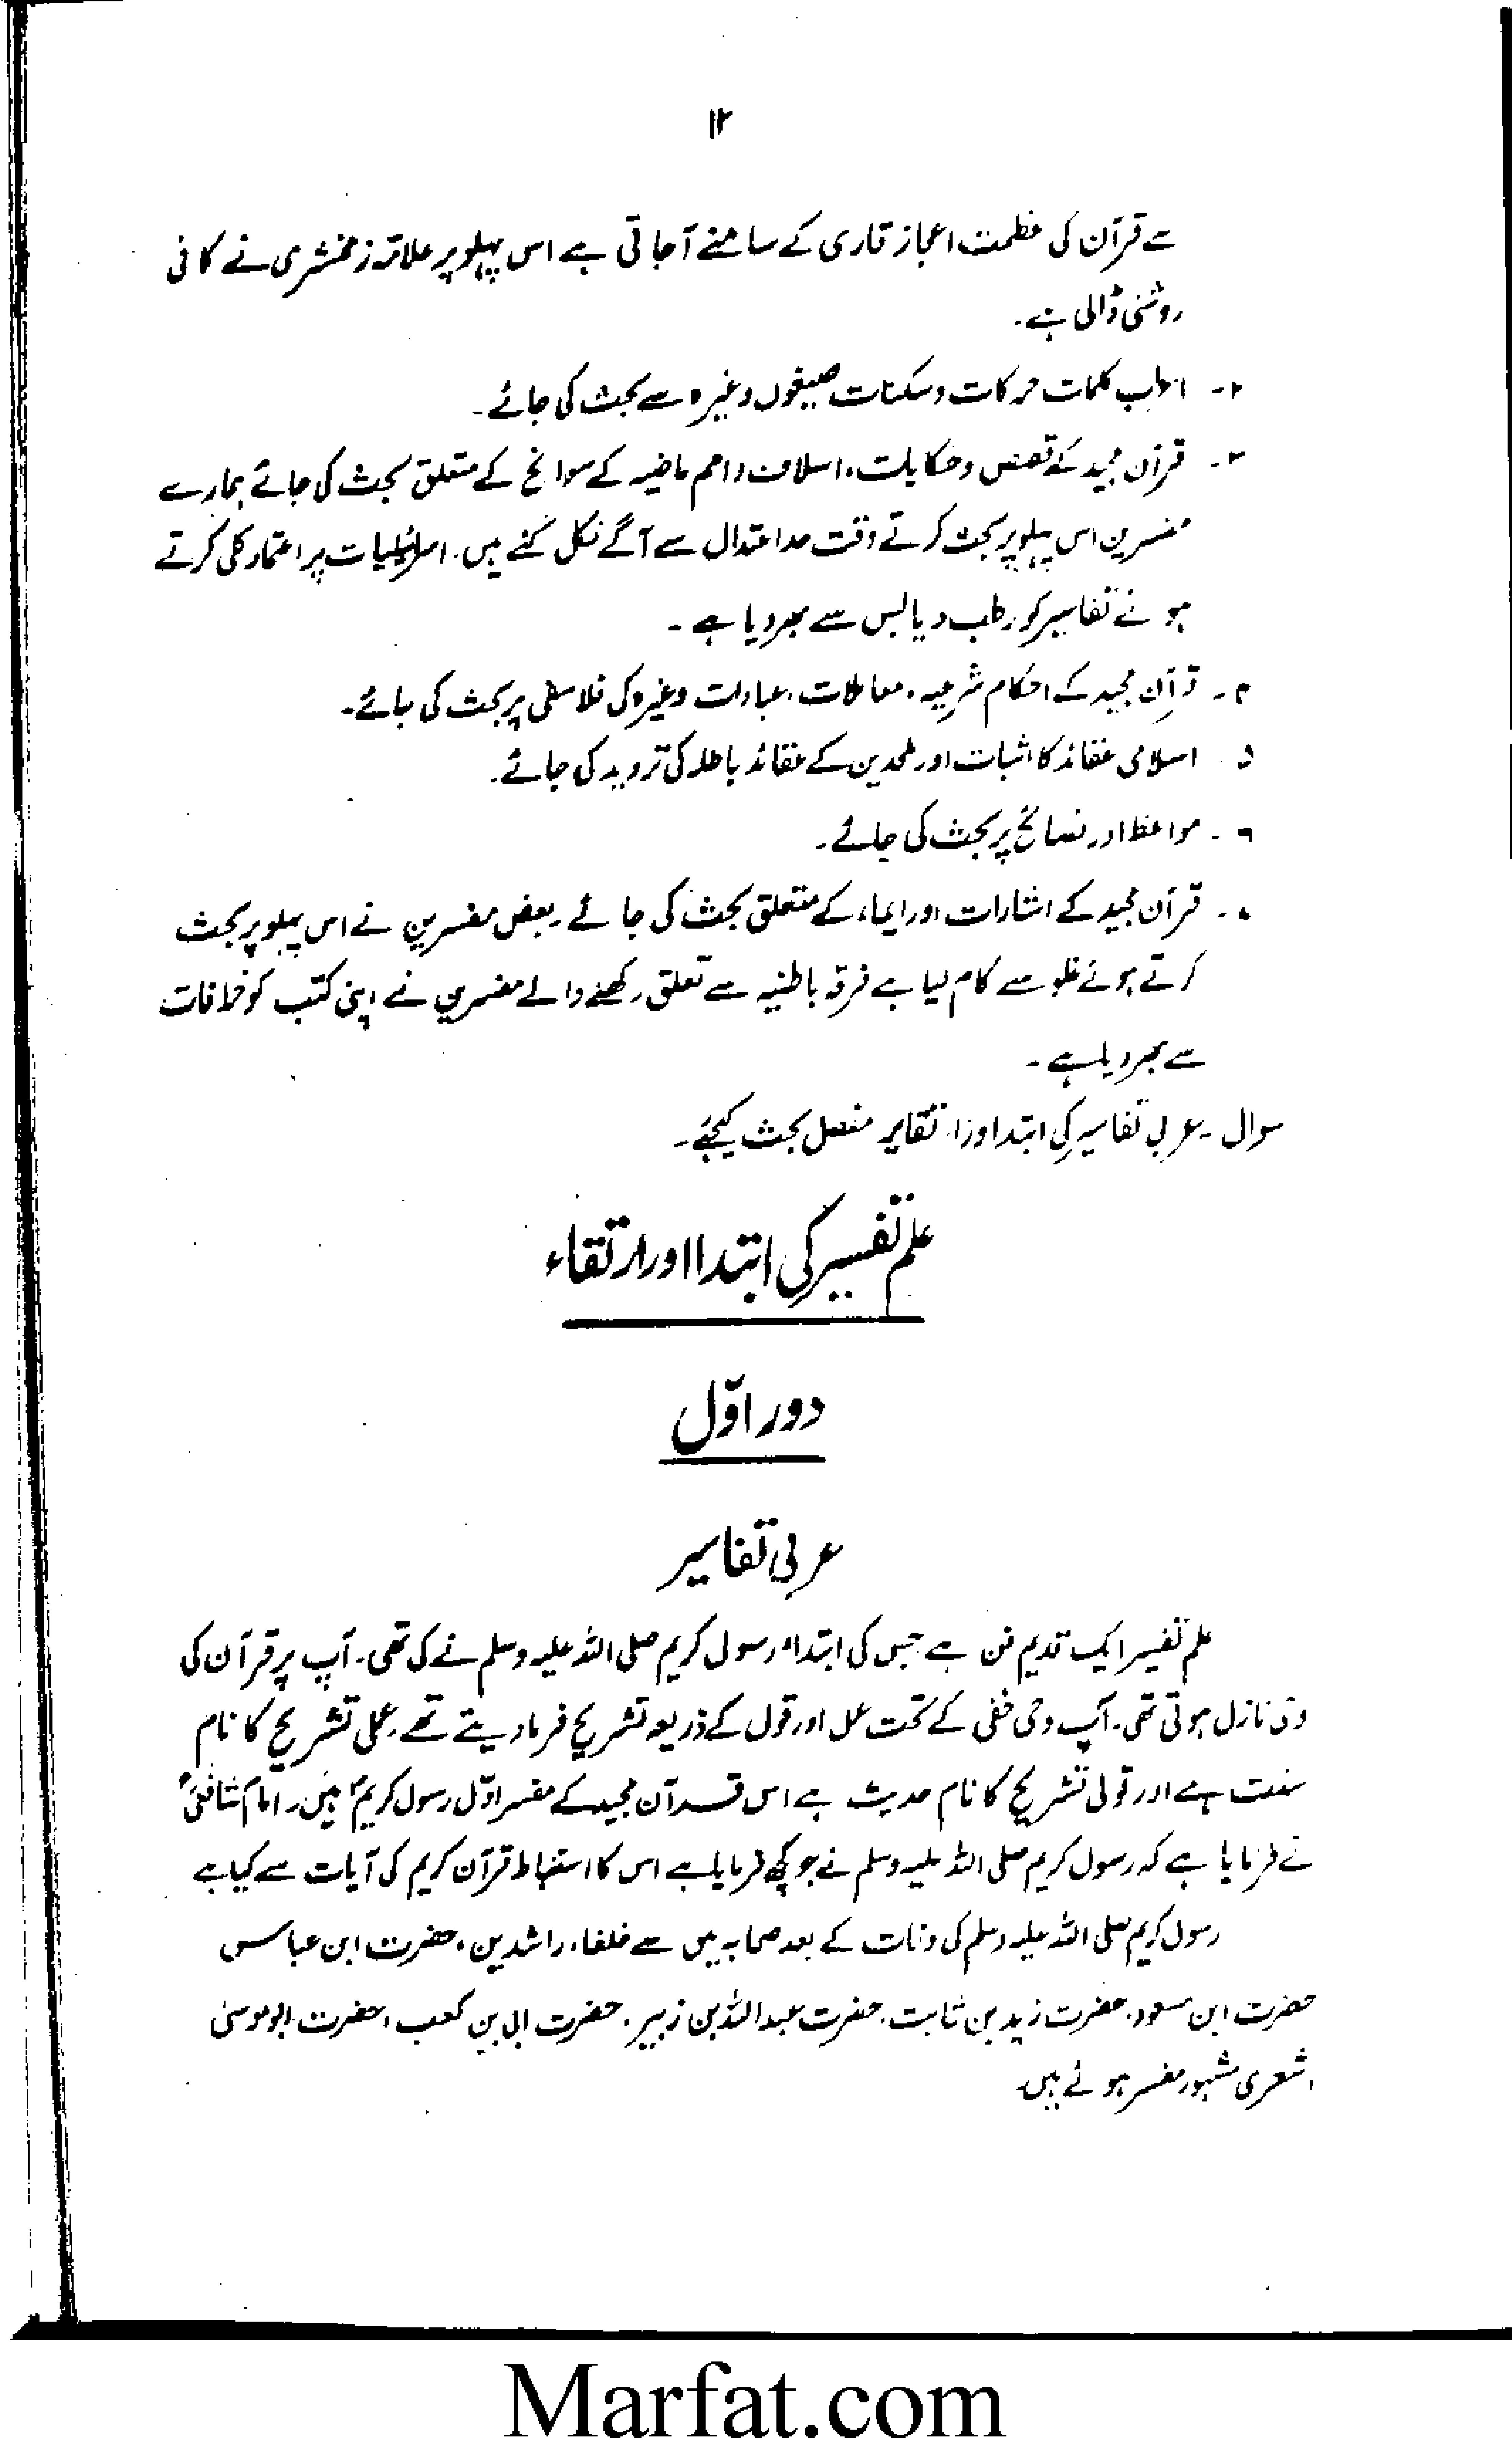 ۱۲
سے قرآن کی عظمت اعجاز قاری کے سامنے آجاتی ہے اس پہلو پر علامہ زمخشری نے کافی
روشنی ڈالی ہے۔
۲۔ اعراب کلمات حرکات و سکنات صیغوں وغیرہ سے بحث کی جائے۔
۳۔ قرآن مجید کے قصص و حکایات، اسلاف و امم ماضیہ کے سوانح کے متعلق بحث کی جائے ہمارے
مفسرین اس پہلو پر بحث کرتے وقت حد اعتدال سے آگے نکل گئے ہیں۔ اسرائیلیات پر اعتماد کلی کرتے
ہوئے تفاسیر کو رطب و یابس سے بھر دیا ہے۔
۴۔ قرآن مجید کے احکام شرعیہ، معاملات، عبادات وغیرہ کی فلاسفی پر بحث کی جائے۔
۵۔ اسلامی عقائد کا اثبات اور ملحدین کے عقائد باطلہ کی تردید کی جائے۔
۶۔ مواعظ اور نصائح پر بحث کی جائے۔
قرآن مجید کے اشارات اور ایماء کے متعلق بحث کی جائے۔ بعض مفسرین نے اس پہلو پر بحث
کرتے ہوئے غلو سے کام لیا ہے فرقہ باطنیہ سے تعلق رکھنے والے مفسرین نے اپنی کتب کو خرافات
سے بھر دیا ہے۔
سوال۔ عربی تفاسیر کی ابتدا اور ارتقا پر مفصل بحث کیجئے۔
علم تفسیر کی ابتدا اور ارتقاء
دور اوّل
عربی تفاسیر
علم تفسیر ایک قدیم فن ہے جس کی ابتداء رسول کریم صلی اللہ علیہ وسلم نے کی تھی۔ آپ پر قرآن کی
وحی نازل ہوتی تھی۔ آپ وحی خفی کے تحت عمل اور قول کے ذریعہ تشریح فرما دیتے تھے۔ عملی تشریح کا نام
سنت ہے اور قولی تشریح کا نام حدیث ہے اس قرآن مجید کے مفسر اوّل رسول کریمؐ ہیں۔ امام شافعیؒ
نے فرمایا ہے کہ رسول کریم صلی اللہ علیہ وسلم نے جو کچھ فرمایا ہے اس کا استنباط قرآن کریم کی آیات سے کیا ہے
رسول کریم صلی اللہ علیہ وسلم کی وفات کے بعد صحابہ میں سے خلفاء راشدین، حضرت ابن عباس
حضرت ابن مسعود، حضرت زید بن ثابت، حضرت عبداللہ بن زبیر، حضرت ابی بن کعب، حضرت ابو موسیٰ
اشعری مشہور مفسر ہوئے ہیں۔
Marfat.com